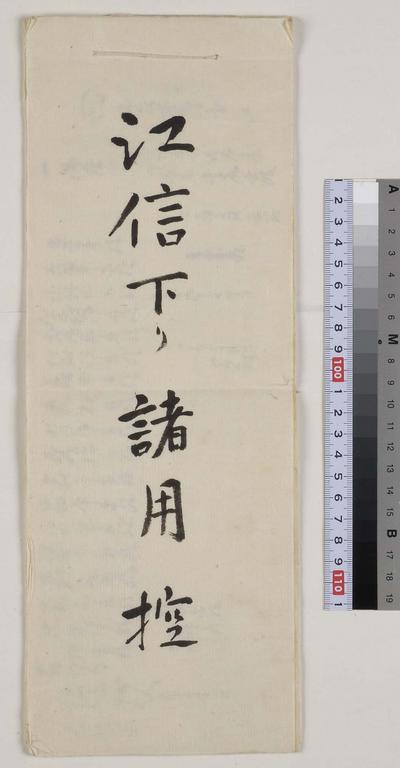 江信下り諸用控
1 2 3 4 5 6 7 8 9 100 1 2 3 4 5 6 7 8 9 110 1
A 1 2 3 4 5 6 M 8 9 10 11 12 13 14 15 B 17 18 19